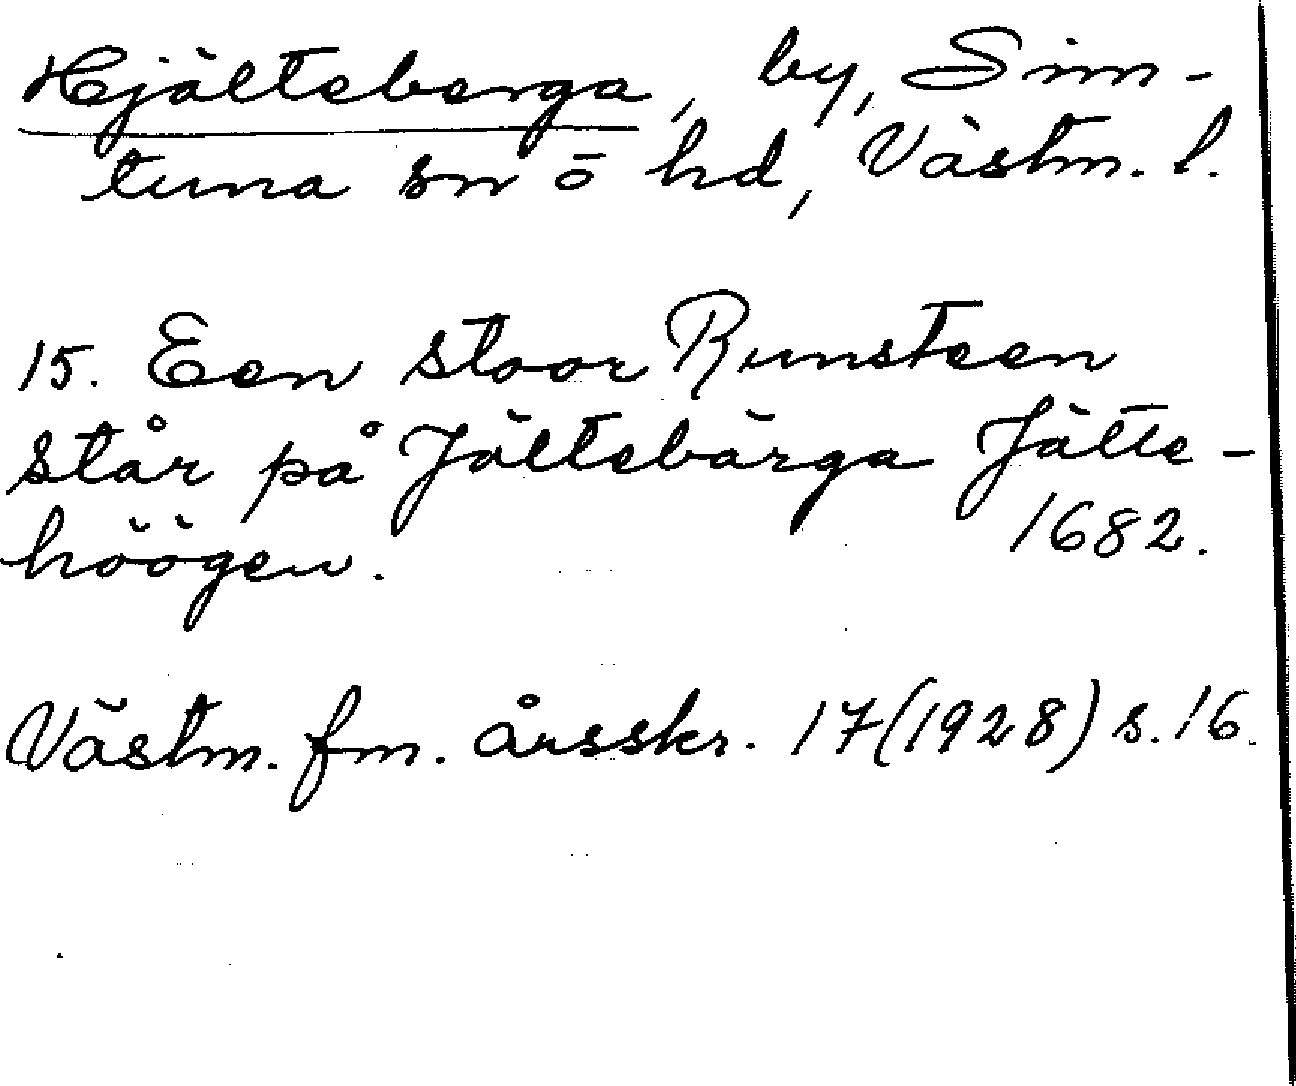 Hjälteberga, by, Sim-
tuna sn ō hd, Västm. l.
15. Een stoor Runsteen
står på Jältebärga Jätte-
höögen. 1682.
Västm. fm. årsskr. 17(1928) s. 16.